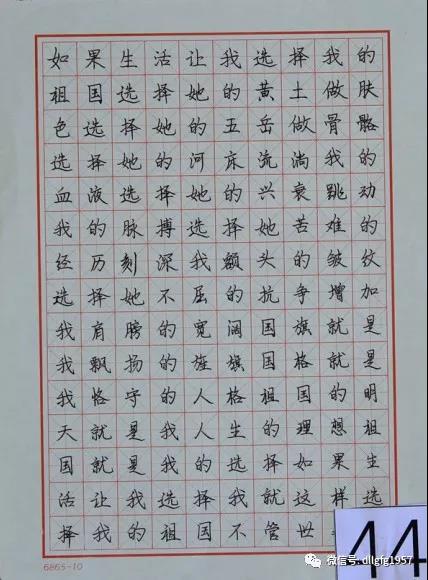 如果生活让我选择我的
祖国选择她的黄土做肤
色选择她的五岳做骨骼
选择她的河床流淌我的
血液选择她的兴衰跳动
我的脉搏选择她苦难的
经历刻深我额头的皱纹
选择她不屈的抗争增加
我肩膀的宽阔国旗就是
我飘扬的旌旗国格就是
我恪守的人格祖国的明
天就是我人生的理想祖
国就是我的选择如果生
活让我选择我就这样选
择我的祖国不管世
6865-10
44
微信号: dllgfg1957